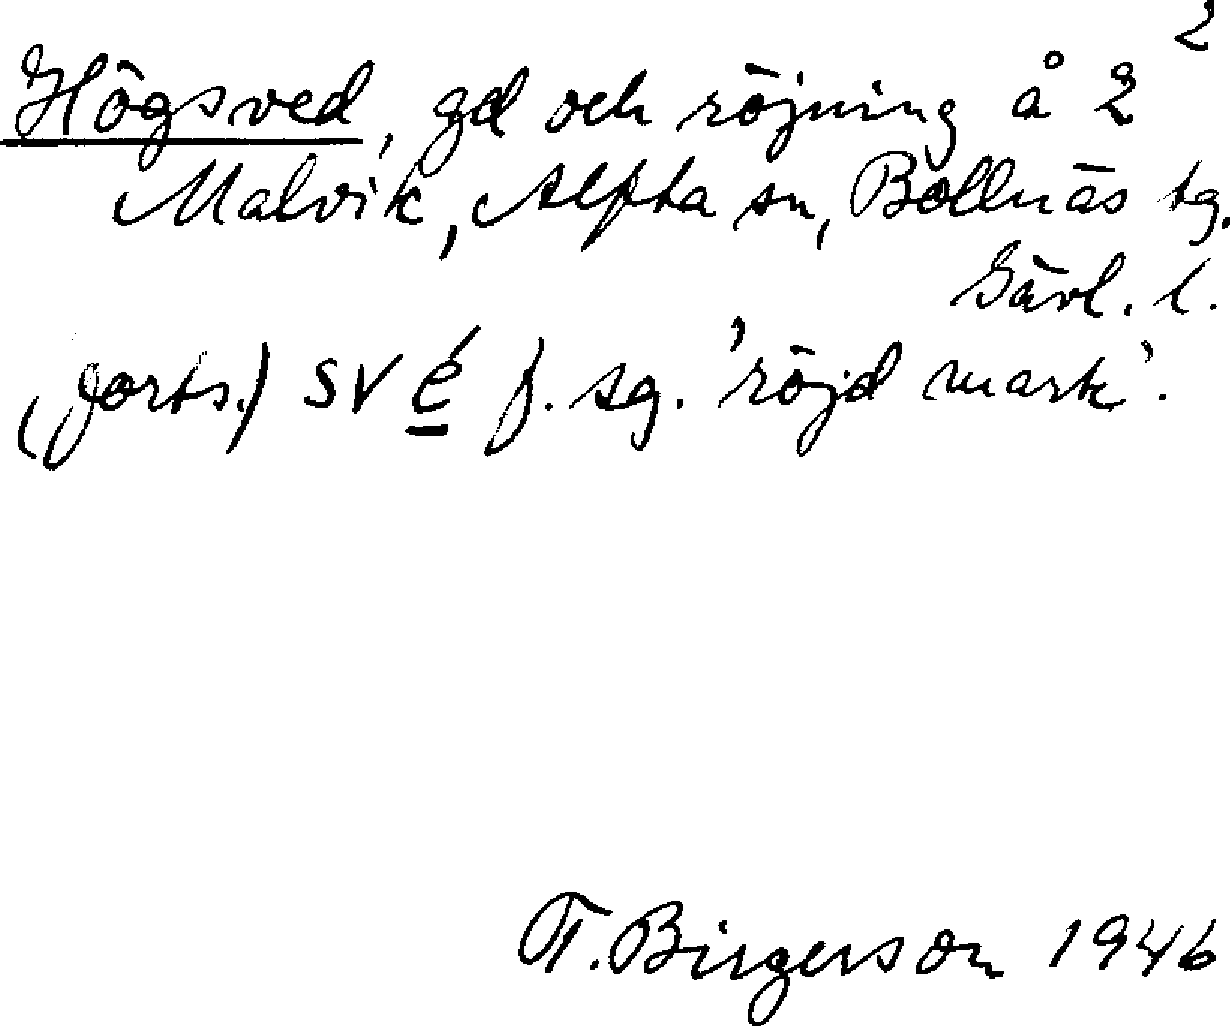 2
Högsved, gd och röjning å 2
Malvik, Alfta sn, Bollnäs tg.
Gävl. l.
(forts.) sv é f. sg. 'röjd mark'.
T. Birgerson 1946